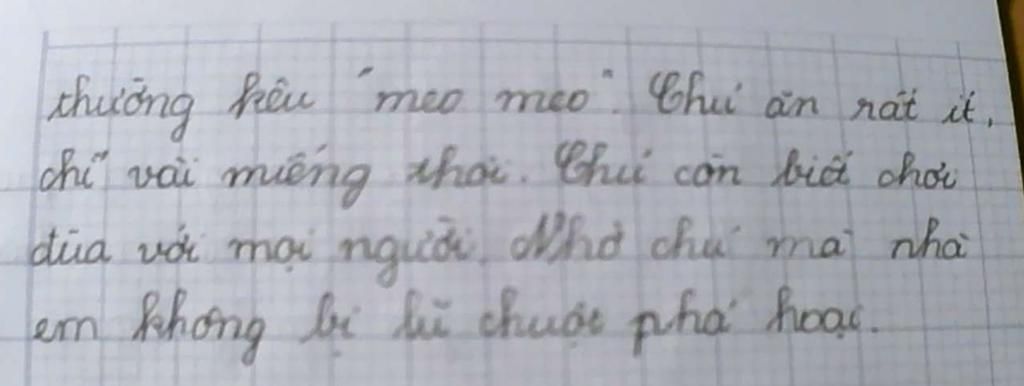 thường kêu "meo meo". Chú ăn rất ít,
chỉ vài miếng thôi. Chú còn biết chơi
đùa với mọi người. Nhờ chú mà nhà
em không bị lũ chuột phá hoại.